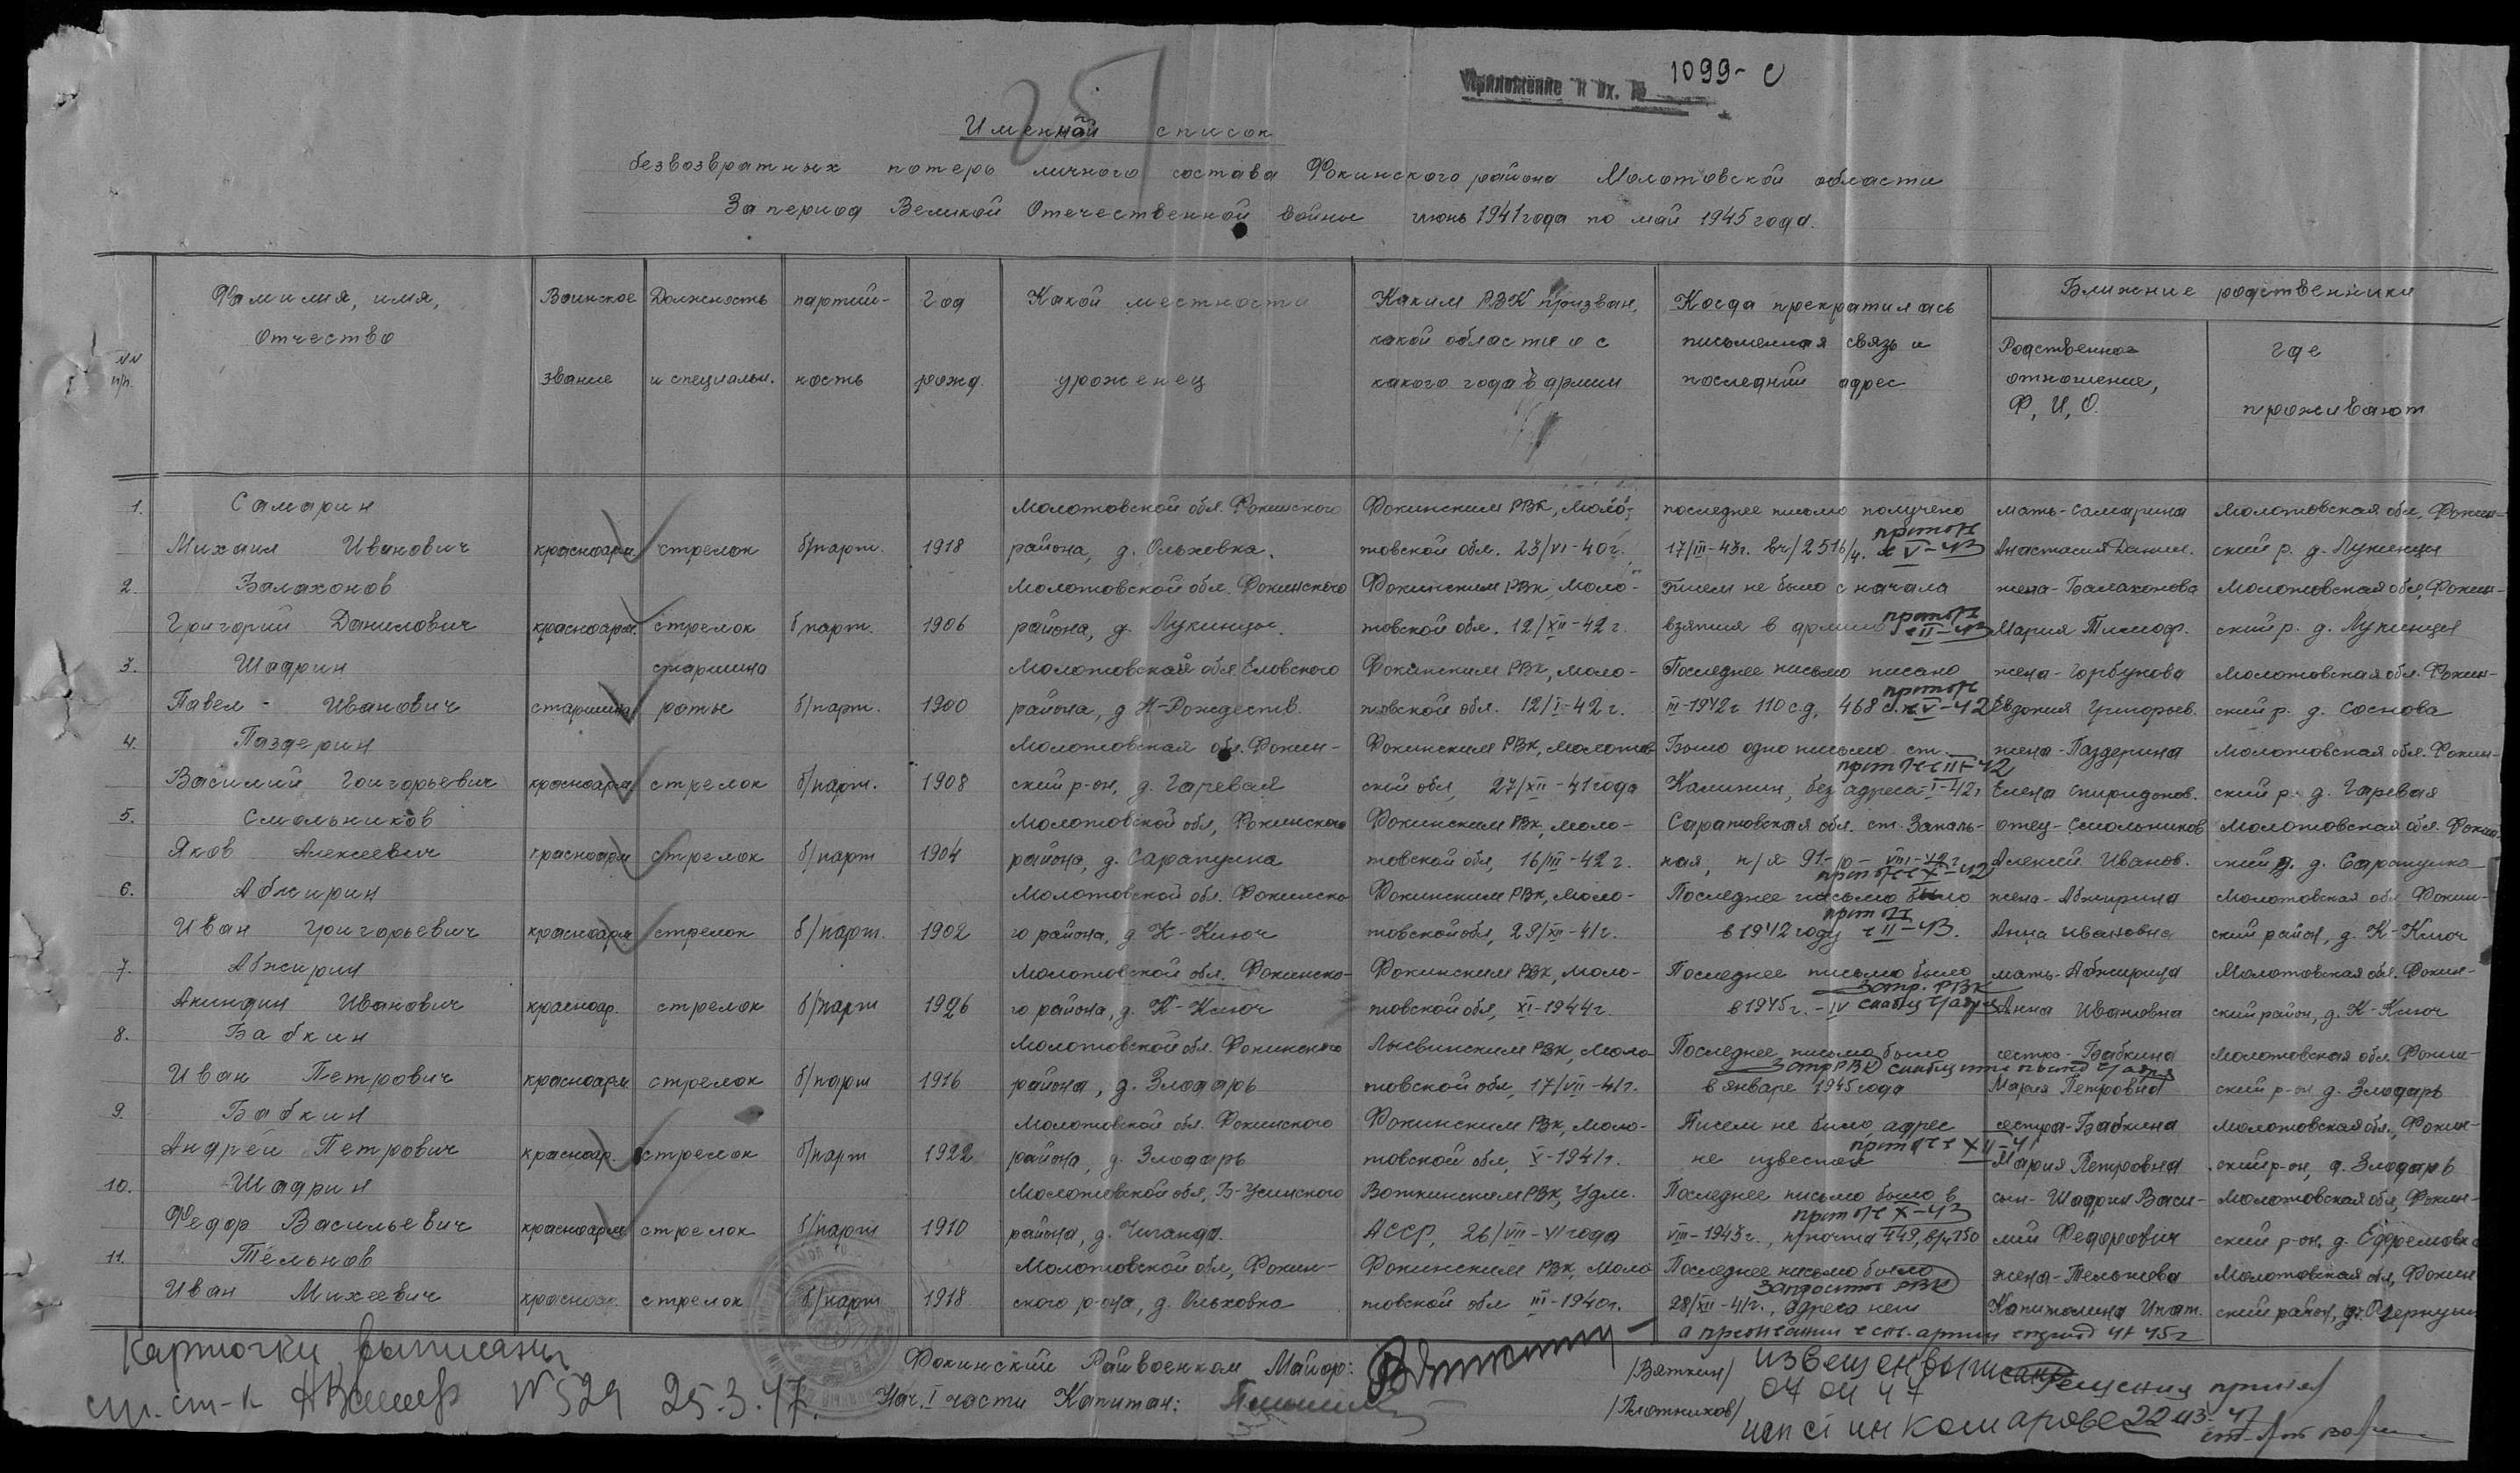 Приложение к вх. № 1099-с
251
Именной список
безвозвратных потерь личного состава Фокинского района Молотовской области
За период Великой Отечественной войны июнь 1941 года по май 1945 года.
№№ п/п.
Фамилия, имя, отчество
Воинское звание
Должность и специальн.
партий-
ность
Год рожд.
Какой местности уроженец
Каким РВК призван,
какой области и с
какого года в армии
Когда прекратилась
письменная связь и
последний адрес
Ближние родственники
Родственное
отношение,
Ф, И, О.
где
проживают
1. Самарин Молотовской обл. Фокинского Фокинским РВК, Моло- последнее письмо получено мать-Самарина Молотовская обл, Фокин-
Михаил Иванович красноарм. стрелок б/парт. 1918 района, д. Ольховка. товской обл. 23/VI-40г. 17/III-43г. вч/2516/ч. V-43 Анастасия Данил. ский р. д. Лукинцы
2. Балахонов Молотовской обл. Фокинского Фокинским РВК, Моло- Писем не было с начала жена-Балахонова Молотовская обл, Фокин-
Григорий Данилович красноарм. стрелок б/парт. 1906 района, д. Лукинцы. товской обл. 12/XII-42г. взятия в армию II-43 Мария Тимоф. ский р. д. Лукинцы
3. Шадрин старшина Молотовской обл Еловского Фокинским РВК, Моло- Последнее письмо писано жена-Горбунова Молотовская обл. Фокин-
Павел - Иванович старшина роты б/парт. 1900 района, д Н-Рождеств. товской обл. 12/I-42г. III-1942г 110 с.д, 468 V-42 Евдокия Григорьев. ский р. д. Соснова
4. Паздерин Молотовская обл. Фокин- Фокинским РВК, Молотов Было одно письмо ст. жена-Паздерина Молотовская обл. Фокин-
Василий Григорьевич красноарм. стрелок б/парт. 1908 ский р-он, д. Гаревая ской обл, 27/XII-41 года Калинин, без адреса-I-42г Елена Спиридонов. ский р. д. Гаревая
5. Смольников Молотовской обл, Фокинского Фокинским РВК, Моло- Саратовская обл. ст. отец-Смольников Молотовская обл. Фокин
Яков Алексеевич красноарм стрелок б/парт 1904 района, д. Сарапулка товской обл, 16/III-42г. ная, п/я 91 Алексей Иванов. ский р. д. Сарапулка
6. Абжирин Молотовской обл. Фокинско Фокинским РВК, Моло- Последнее письмо было жена-Абжирина Молотовская обл Фокин-
Иван Григорьевич красноарм стрелок б/парт. 1902 го района, д. К-Ключ товской обл, 29/XII-41г. в 1942 году II-43. Анна Ивановна ский район, д. К-Ключ
7. Абжирин Молотовской обл. Фокинско- Фокинским РВК, Моло- Последнее письмо было мать-Абжирина Молотовская обл. Фокин-
Акиндин Иванович красноар. стрелок б/парт 1926 го района, д. К-Ключ товской обл, XI-1944г. в 1945г.-IV Анна Ивановна ский район, д. К-Ключ
8. Бабкин Молотовской обл. Фокинского Лысвинским РВК, Моло Последнее письмо было сестра-Бабкина Молотовская обл. Фокин-
Иван Петрович красноарм стрелок б/парт 1916 района, д. Злодарь товской обл, 17/VII-41г. в январе 1945 года Мария Петровна ский р-он д. Злодарь
9. Бабкин Молотовской обл. Фокинского Фокинским РВК, Моло- Писем не было, адрес сестра-Бабкина Молотовская обл, Фокин-
Андрей Петрович красноар. стрелок б/парт 1922 района, д. Злодарь товской обл, V-1941г. не известен XII-41 Мария Петровна ский р-он, д. Злодарь
10. Шадрин Молотовской обл, Б-Усинского Воткинским РВК, Удм. Последнее письмо было в сын- Шадрин Васи- Молотовская обл, Фокин-
Федор Васильевич красноарм стрелок б/парт 1910 района, д. Чиганда. АССР, 26/VII-41 года VIII-1943г., п/почта 449, в/ч 150 лий Федорович ский р-он, д. Ефремовка
11. Тельнов Молотовской обл, Фокин- Фокинским РВК, Моло Последнее письмо было жена-Тельнова Молотовская обл, Фокин
Иван Михеевич красноар. стрелок б/парт 1918 ского р-она, д. Ольховка товской обл III-1940г. 28/XII-41г., адреса нет Капитолина Ипат. ский район, д.
Карточки выписаны
№ 529 25-3-47.
Фокинский Райвоенком Майор: /Вяткин/
Нач. I части Капитан: /Плотников/
извещен
07 04 47
22